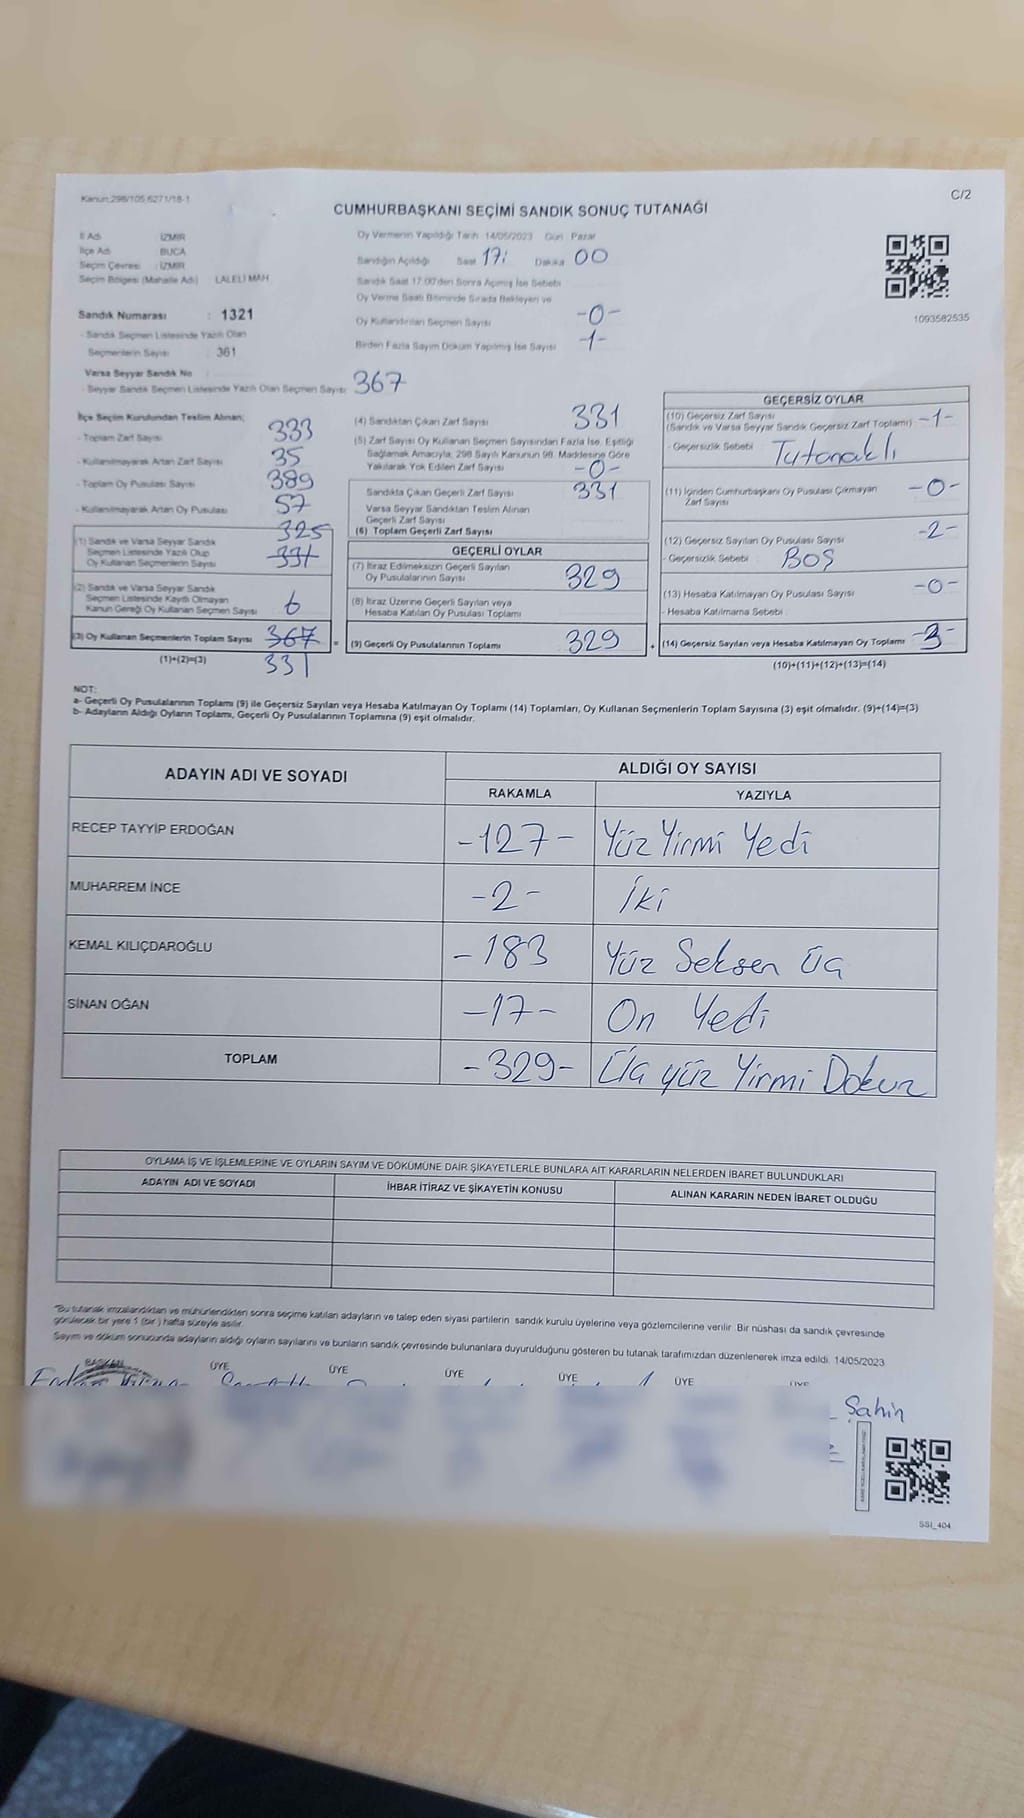 Kanun:298/105,6271/18-1
C/2
CUMHURBAŞKANI SEÇİMİ SANDIK SONUÇ TUTANAĞI
İl Adı : İZMİR
İlçe Adı : BUCA
Seçim Çevresi : İZMİR
Seçim Bölgesi (Mahalle Adı) : LALELİ MAH.
Sandık Numarası : 1321
- Sandık Seçmen Listesinde Yazılı Olan
Seçmenlerin Sayısı : 361
Varsa Seyyar Sandık No
- Seyyar Sandık Seçmen Listesinde Yazılı Olan Seçmen Sayısı: 367
Oy Vermenin Yapıldığı Tarih: 14/05/2023 Gün: Pazar
Sandığın Açıldığı Saat 17: Dakika 00
Sandık Saat 17:00'den Sonra Açılmış İse Sebebi
Oy Verme Saati Bitiminde Sırada Bekleyen ve
Oy Kullandırılan Seçmen Sayısı -0-
Birden Fazla Sayım Döküm Yapılmış İse Sayısı -1-
1093582535
İlçe Seçim Kurulundan Teslim Alınan;
- Toplam Zarf Sayısı 333
- Kullanılmayarak Artan Zarf Sayısı 35
- Toplam Oy Pusulası Sayısı 389
- Kullanılmayarak Artan Oy Pusulası 57
325
(1) Sandık ve Varsa Seyyar Sandık
Seçmen Listesinde Yazılı Olup
Oy Kullanan Seçmenlerin Sayısı 331
(2) Sandık ve Varsa Seyyar Sandık
Seçmen Listesinde Kayıtlı Olmayan
Kanun Gereği Oy Kullanan Seçmen Sayısı 6
(3) Oy Kullanan Seçmenlerin Toplam Sayısı 367
(1)+(2)=(3) 331
(4) Sandıktan Çıkan Zarf Sayısı 331
(5) Zarf Sayısı Oy Kullanan Seçmen Sayısından Fazla İse, Eşitliği
Sağlamak Amacıyla, 298 Sayılı Kanunun 98. Maddesine Göre
Yakılarak Yok Edilen Zarf Sayısı -0-
Sandıkta Çıkan Geçerli Zarf Sayısı 331
Varsa Seyyar Sandıktan Teslim Alınan
Geçerli Zarf Sayısı
(6) Toplam Geçerli Zarf Sayısı
GEÇERLİ OYLAR
(7) İtiraz Edilmeksizin Geçerli Sayılan
Oy Pusulalarının Sayısı 329
(8) İtiraz Üzerine Geçerli Sayılan veya
Hesaba Katılan Oy Pusulası Toplamı
= (9) Geçerli Oy Pusulalarının Toplamı 329
GEÇERSİZ OYLAR
(10) Geçersiz Zarf Sayısı
(Sandık ve Varsa Seyyar Sandık Geçersiz Zarf Toplamı) -1-
- Geçersizlik Sebebi : Tutanaklı
(11) İçinden Cumhurbaşkanı Oy Pusulası Çıkmayan
Zarf Sayısı -0-
(12) Geçersiz Sayılan Oy Pusulası Sayısı -2-
- Geçersizlik Sebebi : BOŞ
(13) Hesaba Katılmayan Oy Pusulası Sayısı -0-
- Hesaba Katılmama Sebebi :
+ (14) Geçersiz Sayılan veya Hesaba Katılmayan Oy Toplamı -3-
(10)+(11)+(12)+(13)=(14)
NOT:
a- Geçerli Oy Pusulalarının Toplamı (9) ile Geçersiz Sayılan veya Hesaba Katılmayan Oy Toplamı (14) Toplamları, Oy Kullanan Seçmenlerin Toplam Sayısına (3) eşit olmalıdır. (9)+(14)=(3)
b- Adayların Aldığı Oyların Toplamı, Geçerli Oy Pusulalarının Toplamına (9) eşit olmalıdır.
ADAYIN ADI VE SOYADI
ALDIĞI OY SAYISI
RAKAMLA YAZIYLA
RECEP TAYYİP ERDOĞAN -127- Yüz Yirmi Yedi
MUHARREM İNCE -2- İki
KEMAL KILIÇDAROĞLU -183 Yüz Seksen Üç
SİNAN OĞAN -17- On Yedi
TOPLAM -329- Üç yüz Yirmi Dokuz
OYLAMA İŞ VE İŞLEMLERİNE VE OYLARIN SAYIM VE DÖKÜMÜNE DAİR ŞİKAYETLERLE BUNLARA AİT KARARLARIN NELERDEN İBARET BULUNDUKLARI
ADAYIN ADI VE SOYADI İHBAR İTİRAZ VE ŞİKAYETİN KONUSU ALINAN KARARIN NEDEN İBARET OLDUĞU
"Bu tutanak imzalandıktan ve mühürlendikten sonra seçime katılan adayların ve talep eden siyasi partilerin sandık kurulu üyelerine veya gözlemcilerine verilir. Bir nüshası da sandık çevresinde
görülecek bir yere 1 (bir) hafta süreyle asılır.
Sayım ve döküm sonucunda adayların aldığı oyların sayılarını ve bunların sandık çevresinde bulunanlara duyurulduğunu gösteren bu tutanak tarafımızdan düzenlenerek imza edildi. 14/05/2023
BAŞKAN ÜYE ÜYE ÜYE ÜYE ÜYE ÜYE
Şahin
SSI_404